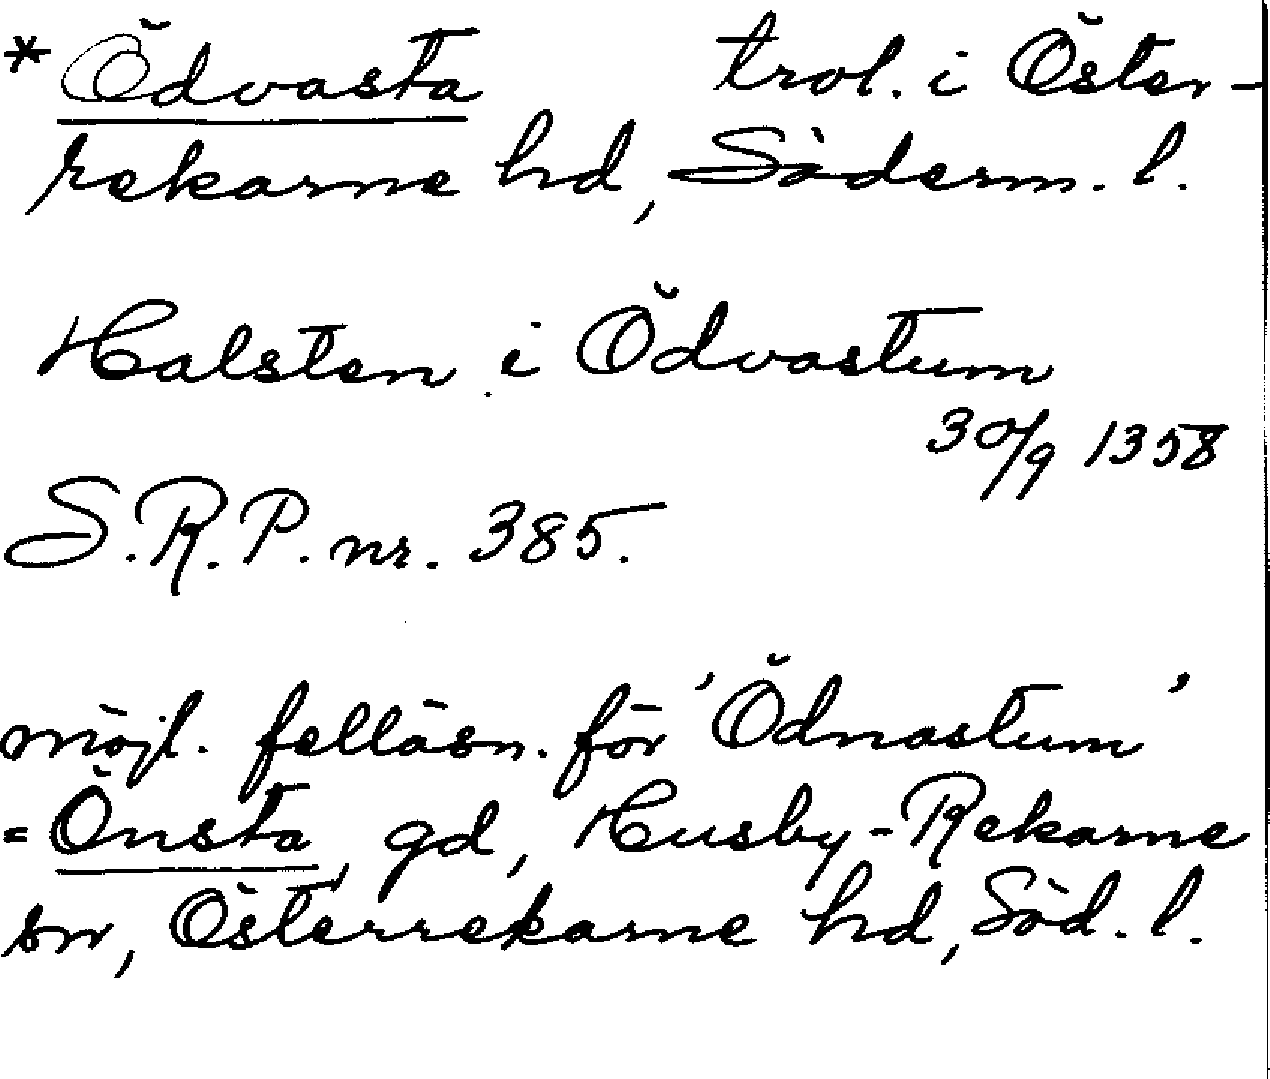 * Ödvasta trol. i Öster-
rekarne hd, Söderm. l.
Halsten i Ödvastum
30/9 1358
S.R.P. nr. 385.
möjl. felläsn. för 'Ödnastum'
= Önsta, gd, Husby-Rekarne
sn, Österrekarne hd, Söd. l.